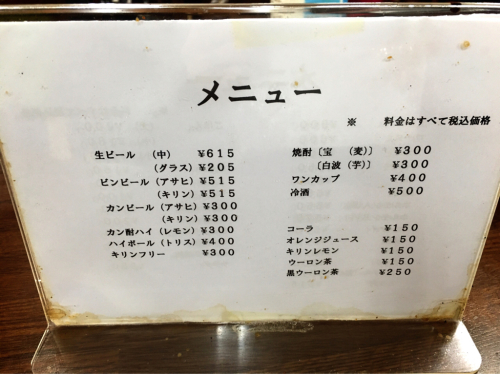 メニュー
※ 料金はすべて税込価格
生ビール (中) ¥615
(グラス) ¥205
ビンビール (アサヒ) ¥515
(キリン) ¥515
カンビール (アサヒ) ¥300
(キリン) ¥300
カン酎ハイ (レモン) ¥300
ハイボール (トリス) ¥400
キリンフリー ¥300
焼酎〔宝 (麦)〕 ¥300
〔白波 (芋)〕 ¥300
ワンカップ ¥400
冷酒 ¥500
コーラ ¥150
オレンジジュース ¥150
キリンレモン ¥150
ウーロン茶 ¥150
黒ウーロン茶 ¥250